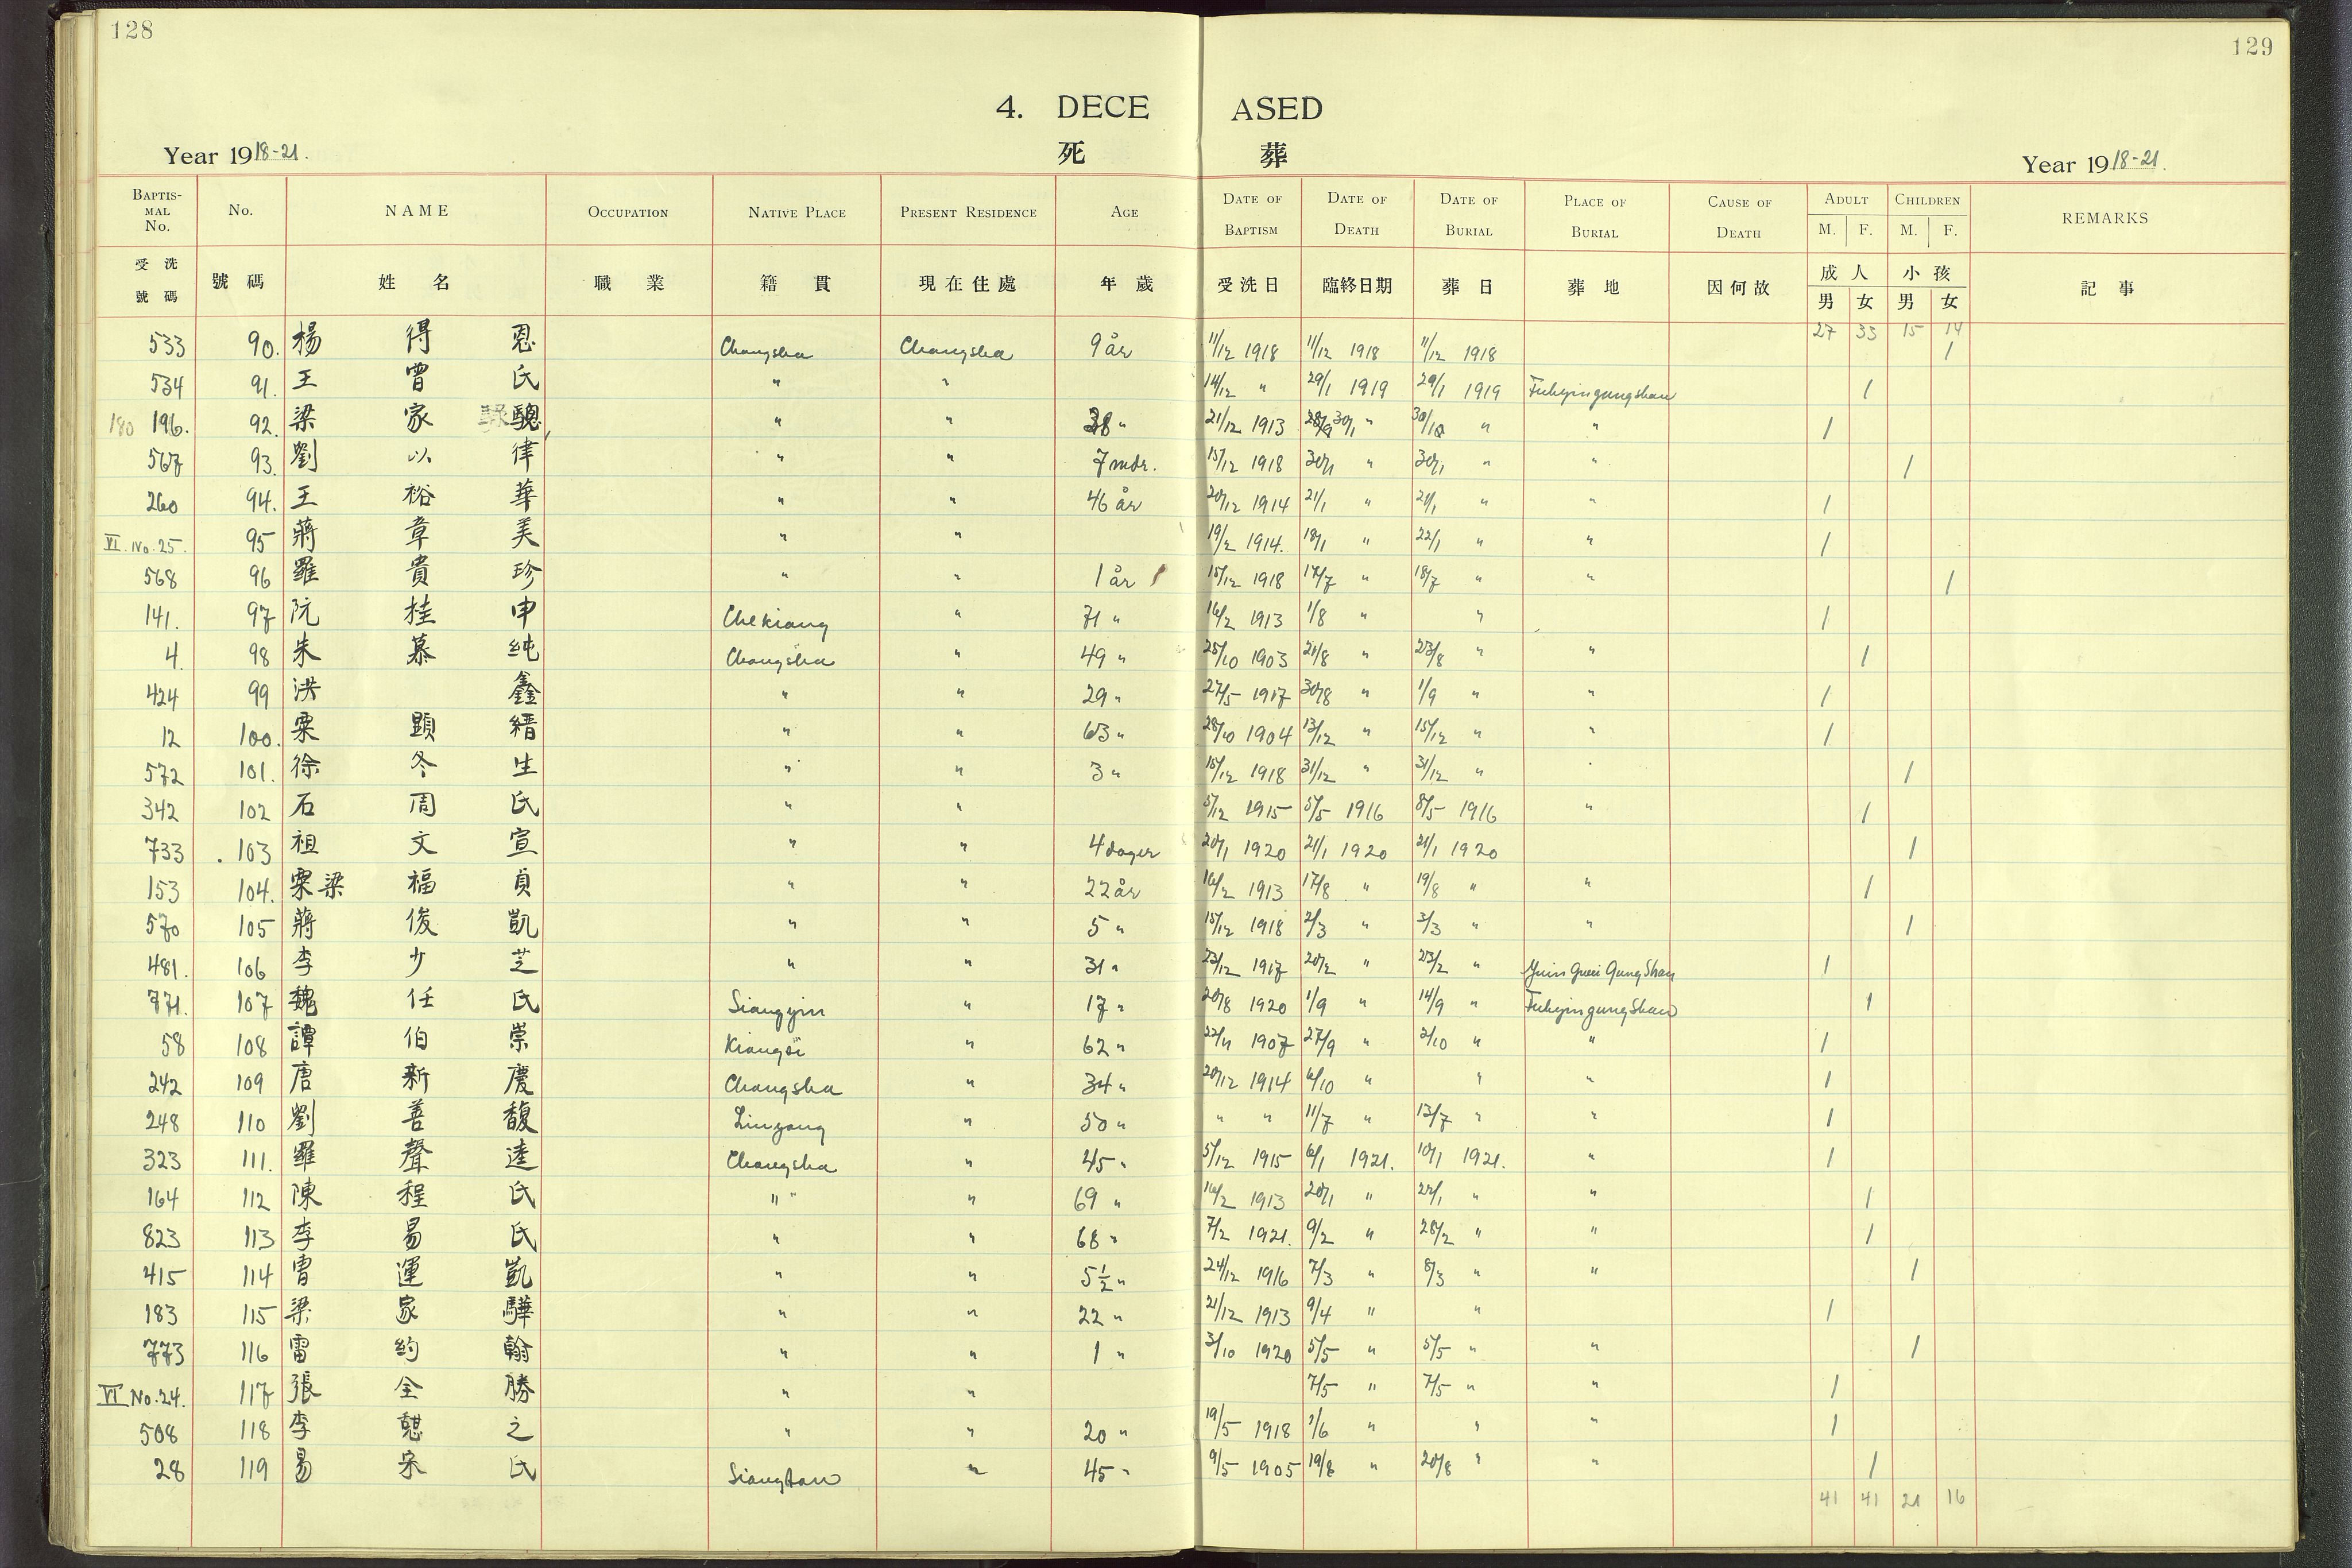 128
129
4. DECEASED
死 葬
Year 1918-21.
Year 1918-21.
BAPTISMAL No. No. NAME OCCUPATION NATIVE PLACE PRESENT RESIDENCE AGE DATE OF BAPTISM DATE OF DEATH DATE OF BURIAL PLACE OF BURIAL CAUSE OF DEATH ADULT M. F. CHILDREN M. F. REMARKS
受洗號碼 號碼 姓名 職業 籍貫 現在住處 年歲 受洗日 臨終日期 葬日 葬地 因何故 成人 男 女 小孩 男 女 記事
27 33 15 14
533 90. 楊得恩 Changsha Changsha 9 år 11/12 1918 11/12 1918 11/12 1918 /
534 91. 王曾氏 " " 14/12 " 29/1 1919 29/1 1919 Fuhyingungshan /
180 196. 92. 梁家驄 " " 38 " 21/12 1913 30/1 " " " /
567 93. 劉以律 " " 7 mdr. 15/12 1918 30/1 " 30/1 " " /
260 94. 王裕華 " " 46 år 20/12 1914 21/1 " 21/1 " " /
VI. No. 25. 95 蔣章美 " " 19/2 1914. 18/1 " 22/1 " " /
568 96 羅貴珍 " " 1 år 15/12 1918 17/7 " 18/7 " " /
141. 97 阮桂申 Chekiang " 71 " 16/2 1913 1/8 " " /
4. 98 朱慕純 Changsha " 49 " 25/10 1903 21/8 " 23/8 " " /
424 99 洪鑫 " " 29 " 27/5 1917 30/8 " 1/9 " " /
12 100. 粟顯縉 " " 63 " 28/10 1904 13/12 " 15/12 " " /
572 101. 徐冬生 " " 3 " 15/12 1918 31/12 " 31/12 " " /
342 102 石周氏 " " 5/12 1915 5/5 1916 8/5 1916 " /
733 103 祖文宣 " " 4 dager 20/1 1920 21/1 1920 21/1 1920 /
153 104. 粟梁福貞 " " 22 år 16/2 1913 17/8 " 19/8 " " /
570 105 蔣俊凱 " " 5 " 15/12 1918 2/3 " 3/3 " " /
481. 106 李少芝 " " 31 " 23/12 1917 20/2 " 23/2 " Gung Shan /
771. 107 魏任氏 Siangyin " 17 " 20/8 1920 1/9 " 14/9 " Fuhyingungshan /
58 108 譚伯崇 Kiangsi " 62 " 22/11 1907 27/9 " 2/10 " " /
242 109 唐新慶 Changsha " 34 " 20/12 1914 6/10 " " " /
248 110 劉善馥 Liuyang " 50 " " " 11/7 " 13/7 " " /
323 111. 羅聲逵 Changsha " 45 " 5/12 1915 6/1 1921. 10/1 1921. " /
164 112 陳程氏 " " " 69 " 16/2 1913 20/1 " 22/1 " " /
823 113 李易氏 " " 68 " 7/2 1921. 9/2 " 28/2 " " /
415 114 曹運凱 " " 5½ " 24/12 1916 7/3 " 8/3 " " /
183 115 梁家驊 " " 22 " 21/12 1913 9/4 " " /
773 116 雷約翰 " " 1 " 3/10 1920 5/5 " 5/5 " " /
VI No. 24. 117 張全勝 " " 7/5 " 7/5 " " /
508 118 李之 " " 20 " 19/5 1918 /6 " " " /
28 119 易宋氏 Siangtan " 45 " 9/5 1905 19/8 " 20/8 " " /
41 41 21 16